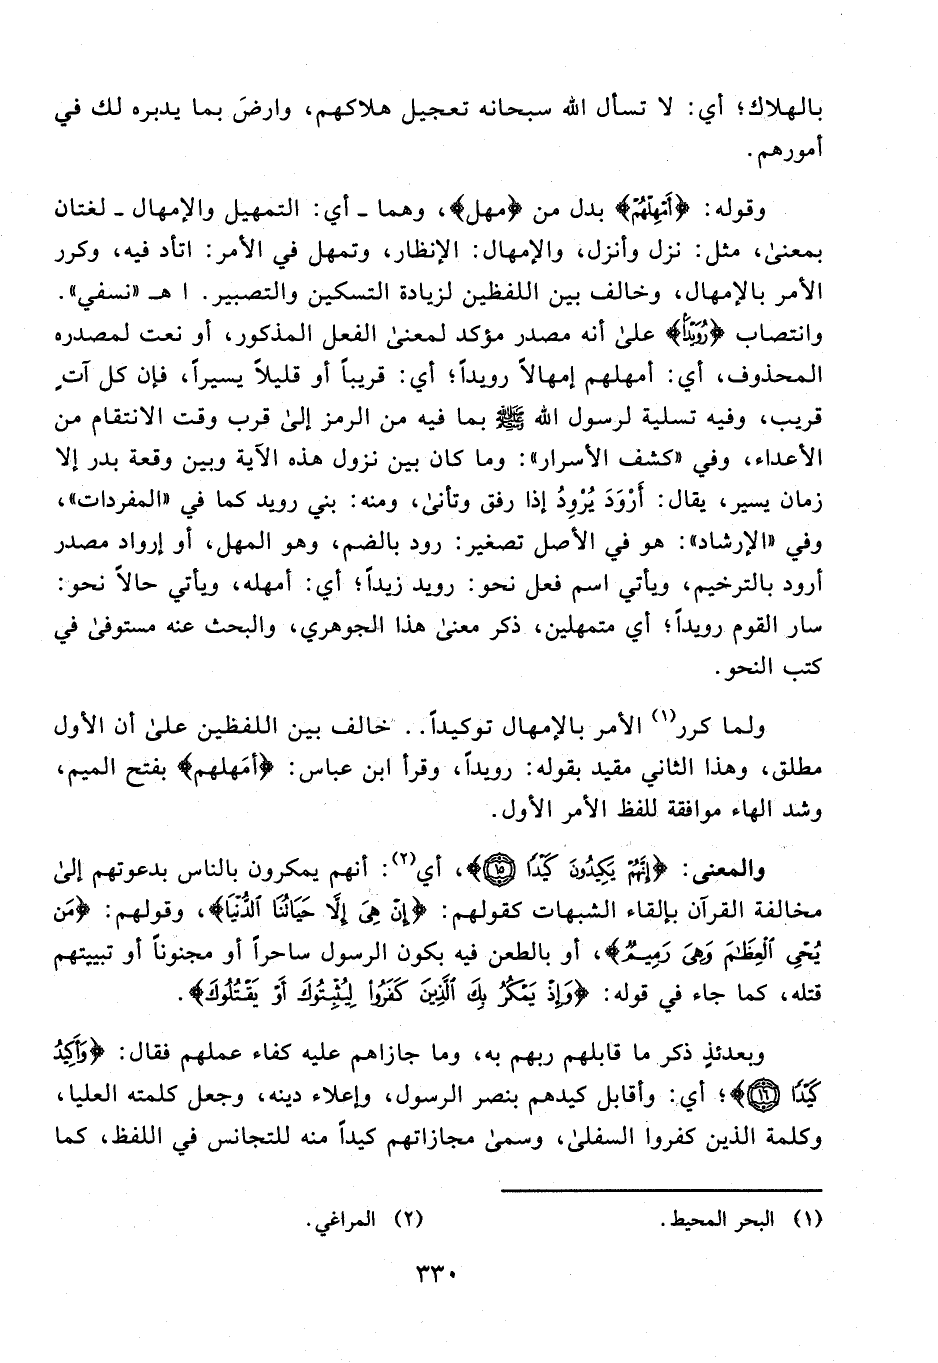 بالهلاك؛ أي: لا تسأل الله سبحانه تعجيل هلاكهم، وارضَ بما يدبره لك في
أمورهم.
وقوله: ﴿أَمْهِلْهُمْ﴾ بدل من ﴿مهل﴾، وهما ـ أي: التمهيل والإمهال ـ لغتان
بمعنىٰ، مثل: نزل وأنزل، والإمهال: الإنظار، وتمهل في الأمر: اتأد فيه، وكرر
الأمر بالإمهال، وخالف بين اللفظين لزيادة التسكين والتصبير. ا هـ «نسفي».
وانتصاب ﴿رُوَيْدًا﴾ علىٰ أنه مصدر مؤكد لمعنىٰ الفعل المذكور، أو نعت لمصدره
المحذوف، أي: أمهلهم إمهالاً رويداً؛ أي: قريباً أو قليلاً يسيراً، فإن كل آتٍ
قريب، وفيه تسلية لرسول الله ﷺ بما فيه من الرمز إلىٰ قرب وقت الانتقام من
الأعداء، وفي «كشف الأسرار»: وما كان بين نزول هذه الآية وبين وقعة بدر إلا
زمان يسير، يقال: أَرْوَدَ يُرْوِدُ إذا رفق وتأنىٰ، ومنه: بني رويد كما في «المفردات»،
وفي «الإرشاد»: هو في الأصل تصغير: رود بالضم، وهو المهل، أو إرواد مصدر
أرود بالترخيم، ويأتي اسم فعل نحو: رويد زيداً؛ أي: أمهله، ويأتي حالاً نحو:
سار القوم رويداً؛ أي متمهلين، ذكر معنىٰ هذا الجوهري، والبحث عنه مستوفىٰ في
كتب النحو.
ولما كرر(١) الأمر بالإمهال توكيداً.. خالف بين اللفظين علىٰ أن الأول
مطلق، وهذا الثاني مقيد بقوله: رويداً، وقرأ ابن عباس: ﴿أمَهلهم﴾ بفتح الميم،
وشد الهاء موافقة للفظ الأمر الأول.
والمعنى: ﴿إِنَّهُمْ يَكِيدُونَ كَيْدًا ١٥﴾، أي(٢): أنهم يمكرون بالناس بدعوتهم إلىٰ
مخالفة القرآن بإلقاء الشبهات كقولهم: ﴿إِنْ هِيَ إِلَّا حَيَاتُنَا ٱلدُّنْيَا﴾، وقولهم: ﴿مَن
يُحْيِ ٱلْعِظَٰمَ وَهِيَ رَمِيمٌ﴾، أو بالطعن فيه بكون الرسول ساحراً أو مجنوناً أو تبييتهم
قتله، كما جاء في قوله: ﴿وَإِذْ يَمْكُرُ بِكَ ٱلَّذِينَ كَفَرُوا۟ لِيُثْبِتُوكَ أَوْ يَقْتُلُوكَ﴾.
وبعدئذٍ ذكر ما قابلهم ربهم به، وما جازاهم عليه كفاء عملهم فقال: ﴿وَأَكِيدُ
كَيْدًا ١٦﴾؛ أي: وأقابل كيدهم بنصر الرسول، وإعلاء دينه، وجعل كلمته العليا،
وكلمة الذين كفروا السفلىٰ، وسمىٰ مجازاتهم كيداً منه للتجانس في اللفظ، كما
(١) البحر المحيط. (٢) المراغي.
٣٣٠